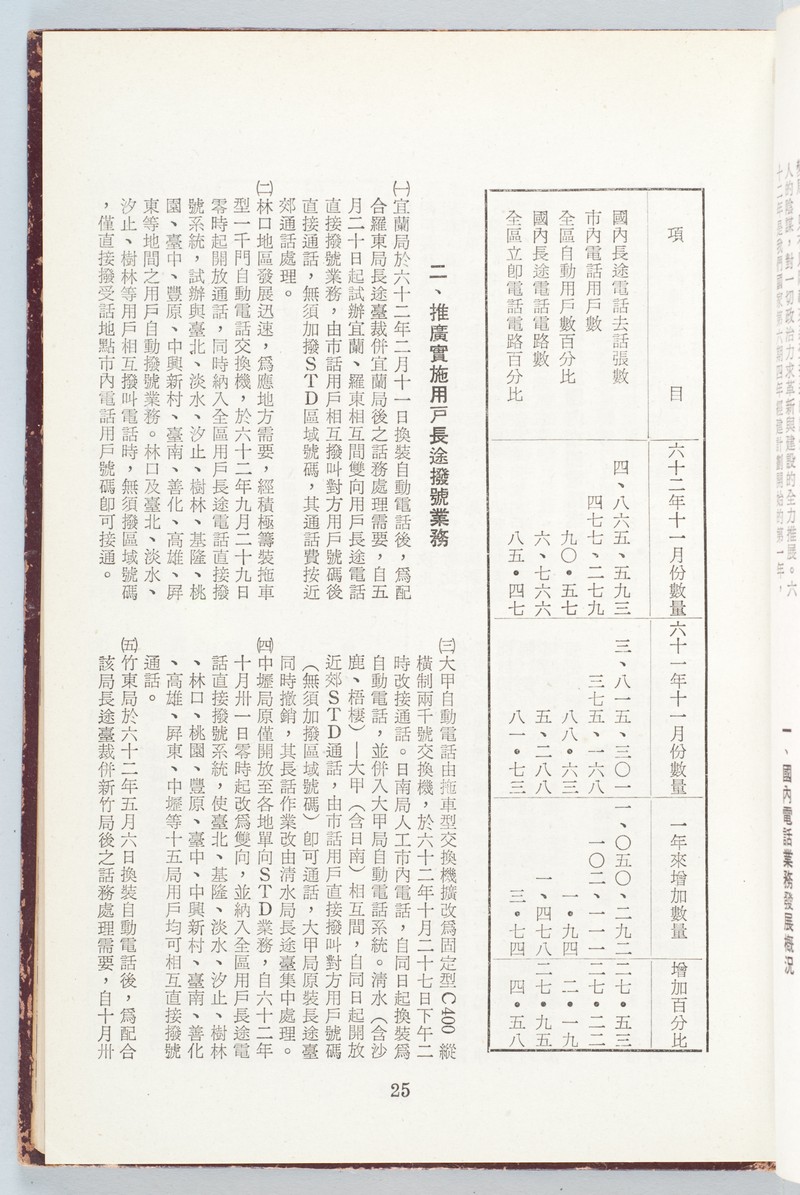 項目
六十二年十一月份數量
六十一年十一月份數量
一年來增加數量
增加百分比
國內長途電話去話張數
四、八六五、五九三
三、八一五、三〇一
一、〇五〇、二九二
二七•五三
市內電話用戶數
四七七、二七九
三七五、一六八
一〇二、一一一
二七•二二
全區自動用戶數百分比
九〇•五七
八八•六三
一•九四
二•一九
國內長途電話電路數
六、七六六
五、二八八
一、四七八
二七•九五
全區立卽電話電路百分比
八五•四七
八一•七三
三•七四
四•五八
二、推廣實施用戶長途撥號業務
㈠宜蘭局於六十二年二月十一日換裝自動電話後，爲配
合羅東局長途臺裁併宜蘭局後之話務處理需要，自五
月二十日起試辦宜蘭、羅東相互間雙向用戶長途電話
直接撥號業務，由市話用戶相互撥叫對方用戶號碼後
直接通話，無須加撥STD區域號碼，其通話費按近
郊通話處理。
㈡林口地區發展迅速，爲應地方需要，經積極籌裝拖車
型一千門自動電話交換機，於六十二年九月二十九日
零時起開放通話，同時納入全區用戶長途電話直接撥
號系統，試辦與臺北、淡水、汐止、樹林、基隆、桃
園、臺中、豐原、中興新村、臺南、善化、高雄、屛
東等地間之用戶自動撥號業務。林口及臺北、淡水、
汐止、樹林等用戶相互撥叫電話時，無須撥區域號碼
，僅直接撥受話地點市內電話用戶號碼卽可接通。
㈢大甲自動電話由拖車型交換機擴改爲固定型C400縱
橫制兩千號交換機，於六十二年十月二十七日下午二
時改接通話。日南局人工市內電話，自同日起換裝爲
自動電話，並併入大甲局自動電話系統。淸水（含沙
鹿、梧棲）—大甲（含日南）相互間，自同日起開放
近郊STD通話，由市話用戶直接撥叫對方用戶號碼
（無須加撥區域號碼）卽可通話，大甲局原裝長途臺
同時撤銷，其長話作業改由淸水局長途臺集中處理。
㈣中壢局原僅開放至各地單向STD業務，自六十二年
十月卅一日零時起改爲雙向，並納入全區用戶長途電
話直接撥號系統，使臺北、基隆、淡水、汐止、樹林
、林口、桃園、豐原、臺中、中興新村、臺南、善化
、高雄、屛東、中壢等十五局用戶均可相互直接撥號
通話。
㈤竹東局於六十二年五月六日換裝自動電話後，爲配合
該局長途臺裁併新竹局後之話務處理需要，自十月卅
25
一、國內電話業務發展概況